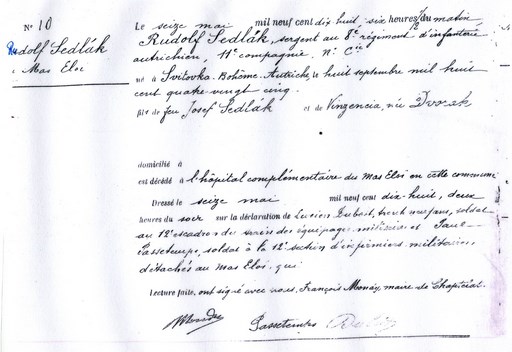 N° 10
Rudolf Sedlák
à Mas Eloi
Le seize mai mil neuf cent dix-huit, six heures 1/2 du matin
Rudolf Sedlák, sergent au 8e régiment d'infanterie
autrichien, 11e compagnie N° Cie
né à Svitovka. Bohème. Autriche, le huit septembre mil huit
cent quatre-vingt cinq
fils de feu Josef Sedlák et de Vinzencia, née Dvorak
domicilié à
est décédé à l'hôpital complémentaire du Mas Eloi en cette commune
Dressé le seize mai mil neuf cent dix-huit, deux
heures du soir sur la déclaration de Lucien Dubost, trente neuf ans, soldat
au 12e escadron du train des équipages militaires et Paul
Passetemps, soldat à la 12e section d'infirmiers militaires,
détachés au Mas Eloi, qui
Lecture faite, ont signé avec nous, François Monay, maire de Chaptelat.
Passetemps